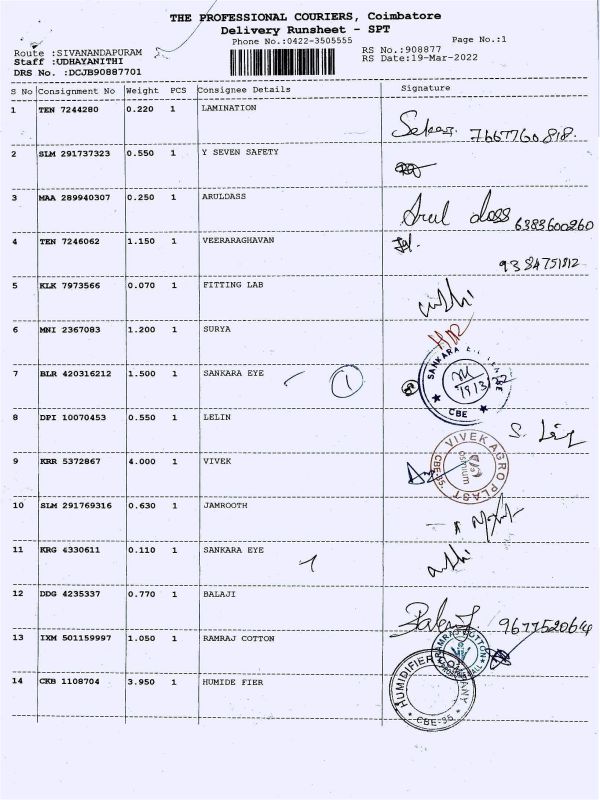 THE PROFESSIONAL COURIERS, Coimbatore
Delivery Runsheet - SPT
Phone No.:0422-3505555 Page No.:1
Route :SIVANANDAPURAM RS No.:908877
Staff :UDHAYANITHI RS Date:19-Mar-2022
DRS No. :DCJB90887701
S No Consignment No Weight PCS Consignee Details Signature
1 TEN 7244280 0.220 1 LAMINATION
7667760818.
2 SLM 291737323 0.550 1 Y SEVEN SAFETY
3 MAA 289940307 0.250 1 ARULDASS
Arul doss 6383600260
4 TEN 7246062 1.150 1 VEERARAGHAVAN
9384751812
5 KLK 7973566 0.070 1 FITTING LAB
6 MNI 2367083 1.200 1 SURYA
7 BLR 420316212 1.500 1 SANKARA EYE 1
SANKARA
CBE
8 DPI 10070453 0.550 1 LELIN
9 KRR 5372867 4.000 1 VIVEK
VIVEK AGRO PLAST
osmium
CBE-35
10 SLM 291769316 0.630 1 JAMROOTH
11 KRG 4330611 0.110 1 SANKARA EYE
12 DDG 4235337 0.770 1 BALAJI
9677520614
13 IXM 501159997 1.050 1 RAMRAJ COTTON
RAMRAJ COTTON
14 CKB 1108704 3.950 1 HUMIDE FIER
HUMIDIFIER COMPANY
CBE-35